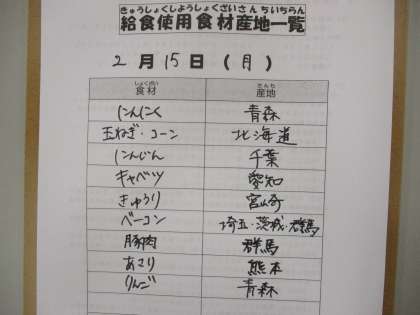 きゅうしょくしようしょくざいさんちいちらん
給食使用食材産地一覧
2月15日(月)
しょくざい さんち
食材 産地
にんにく 青森
玉ねぎ・コーン 北海道
にんじん 千葉
キャベツ 愛知
きゅうり 宮崎
ベーコン 埼玉・茨城・群馬
豚肉 群馬
あさり 熊本
りんご 青森